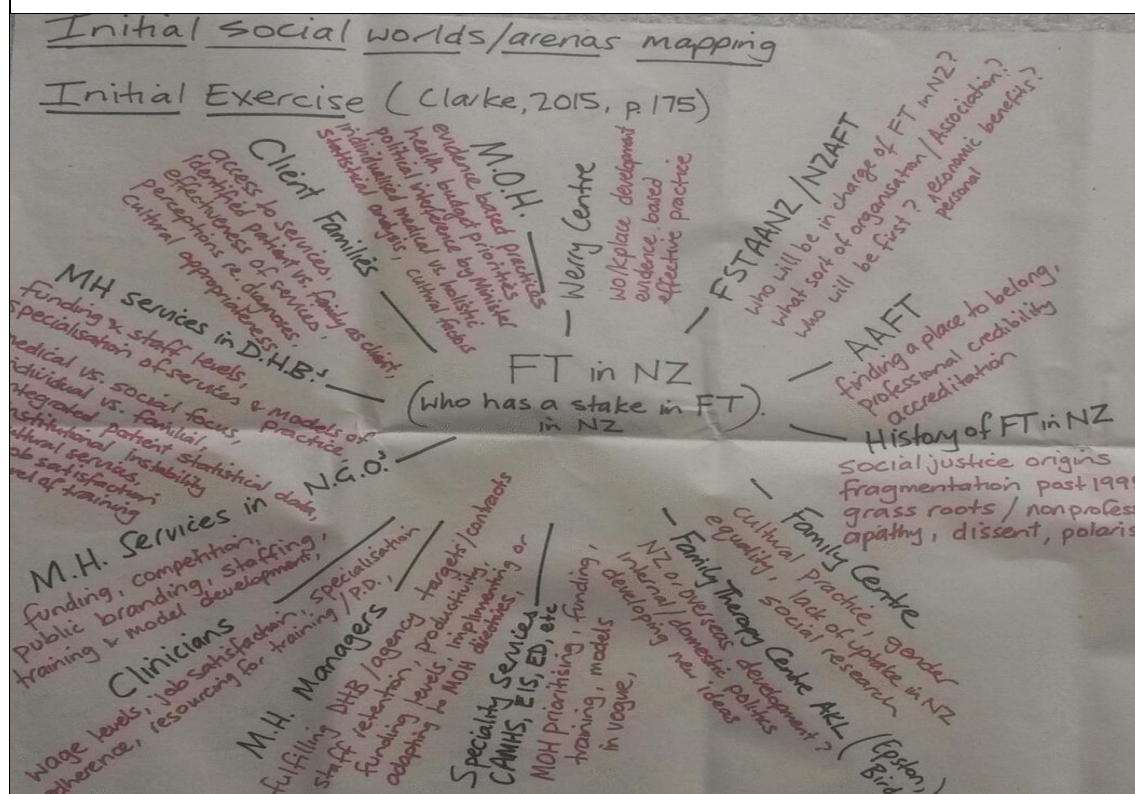 Initial social worlds/arenas mapping
Initial Exercise (Clarke, 2015, p. 175)
FT in NZ
(who has a stake in FT).
in NZ
Client Families
access to services,
identified patient vs. family as client,
effectiveness of services,
perceptions re diagnoses,
cultural appropriateness
M.O.H.
evidence based practices
health budget priorities
political interference by Minister
individualised medical vs. holistic
statistical analysis, cultural
Werry Centre
workplace development
evidence based
effective practice
FSTAANZ/NZAFT
who will be in charge of FT in NZ?
what sort of organisation/Association?
who will be first? economic benefits?
personal
AAFT
finding a place to belong,
professional credibility
accreditation
History of FT in NZ
social justice origins
fragmentation past 199
grass roots / nonprofes
apathy, dissent, polaris
Family Centre
cultural practice, gender
equality, lack of uptake in NZ
social research
Family Therapy Centre AKL (Epston,
Bird
NZ or overseas development?
internal/domestic politics
developing new ideas
Speciality Services
CAMHS, EIS, ED, etc
MOH prioritising, funding,
training, models
in vogue,
M.H. Managers
fulfilling DHB/agency targets/contracts
staff retention, productivity,
funding levels, implementing or
adapting to MOH directives,
Clinicians
wage levels, job satisfaction, specialisation
adherence, resourcing for training/P.D.,
M.H. Services in N.G.O.s
funding, competition,
public branding, staffing,
training & model development,
MH services in D.H.B.s
funding & staff levels,
specialisation of services & models of
practice
medical vs. social focus,
individual vs. familial,
integrated patient statistical data,
institutional instability
cultural services,
job satisfaction
level of training